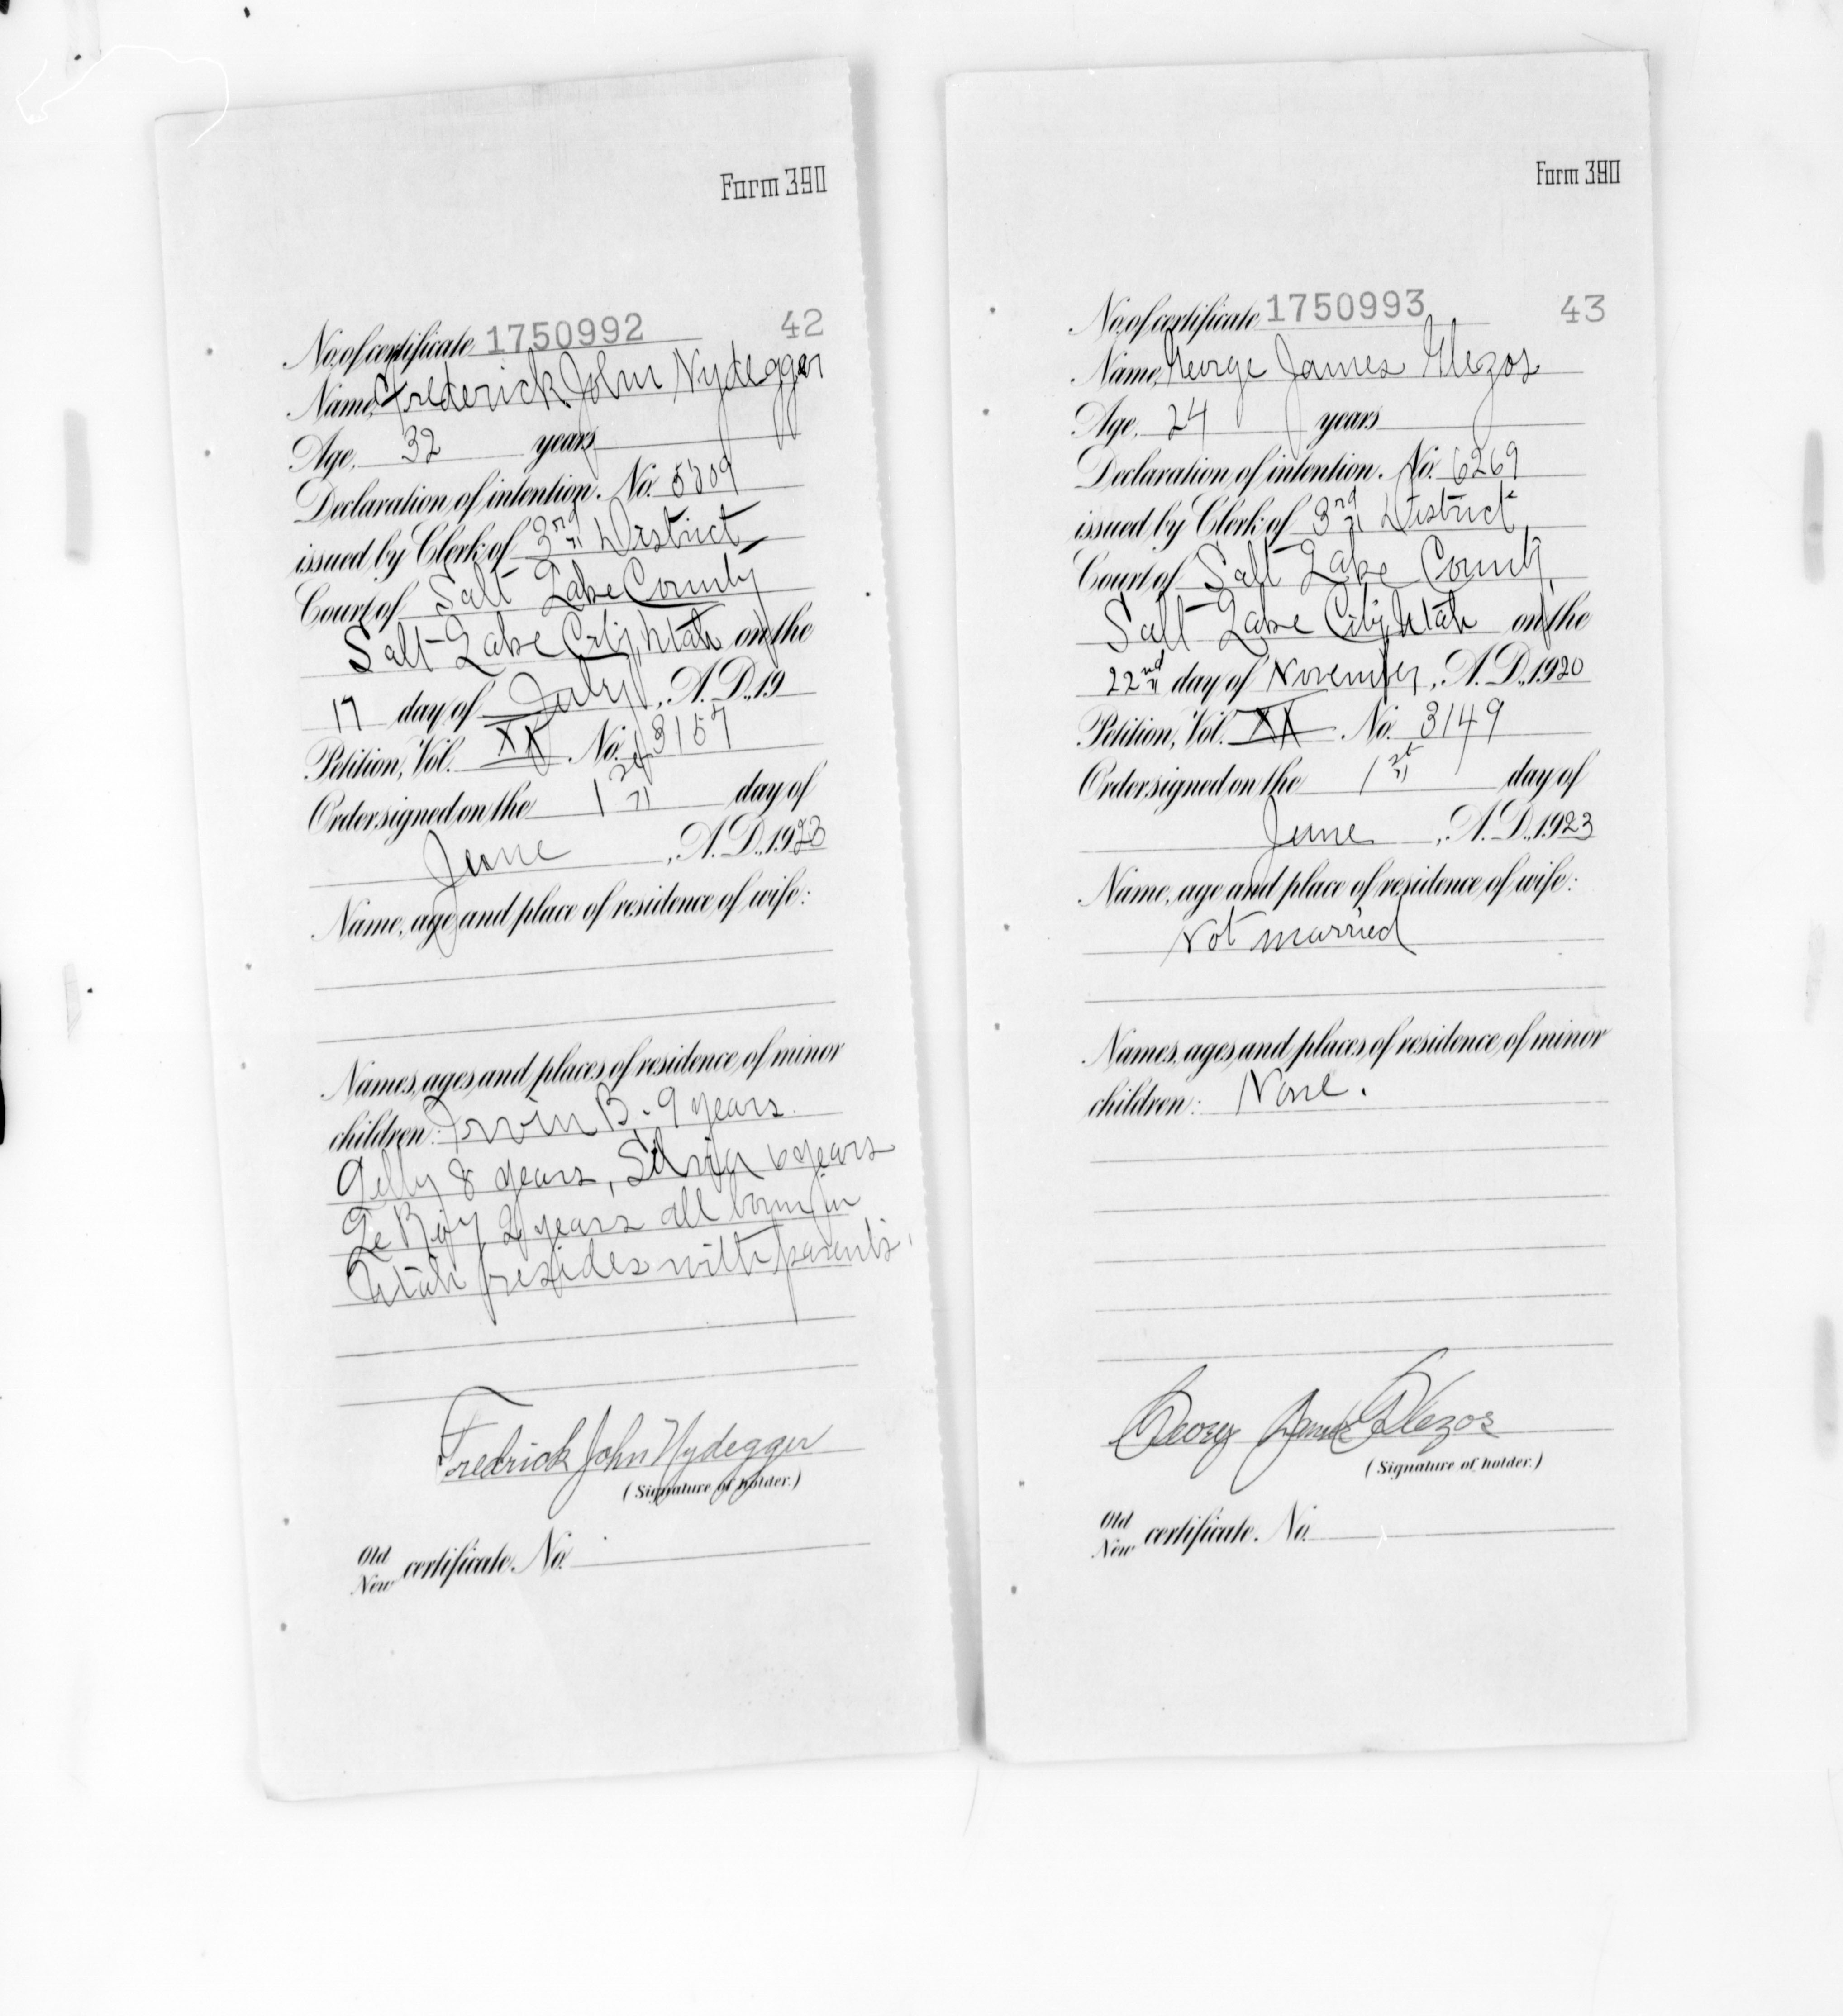 Form 390
No. of certificate 1750992 42
Name, Frederick John Nydegger
Age, 32 years
Declaration of intention. No. 5209
issued by Clerk of 3rd District
Court of Salt Lake County
Salt Lake City, Utah on the
17 day of July, A.D., 19
Petition, Vol. XX No. 3157
Order signed on the 1st day of
June, A.D., 1923
Name, age and place of residence of wife:
Names, ages, and places of residence of minor
children: Irvin B. 9 years
8 years, Silvia 6 years
Le Roy 2 years all born in
Utah resides with parents.
Fredrick John Nydegger
(Signature of holder.)
Old
New certificate. No.
Form 390
No. of certificate 1750993 43
Name, George James Glezos
Age, 24 years
Declaration of intention. No. 6269
issued by Clerk of 3rd District
Court of Salt Lake County,
Salt Lake City, Utah on the
22nd day of November, A.D., 1920
Petition, Vol. XX No. 3149
Order signed on the 1st day of
June, A.D., 1923
Name, age and place of residence of wife:
Not married
Names, ages, and places of residence of minor
children: None.
George James Glezos
(Signature of holder.)
Old
New certificate. No.